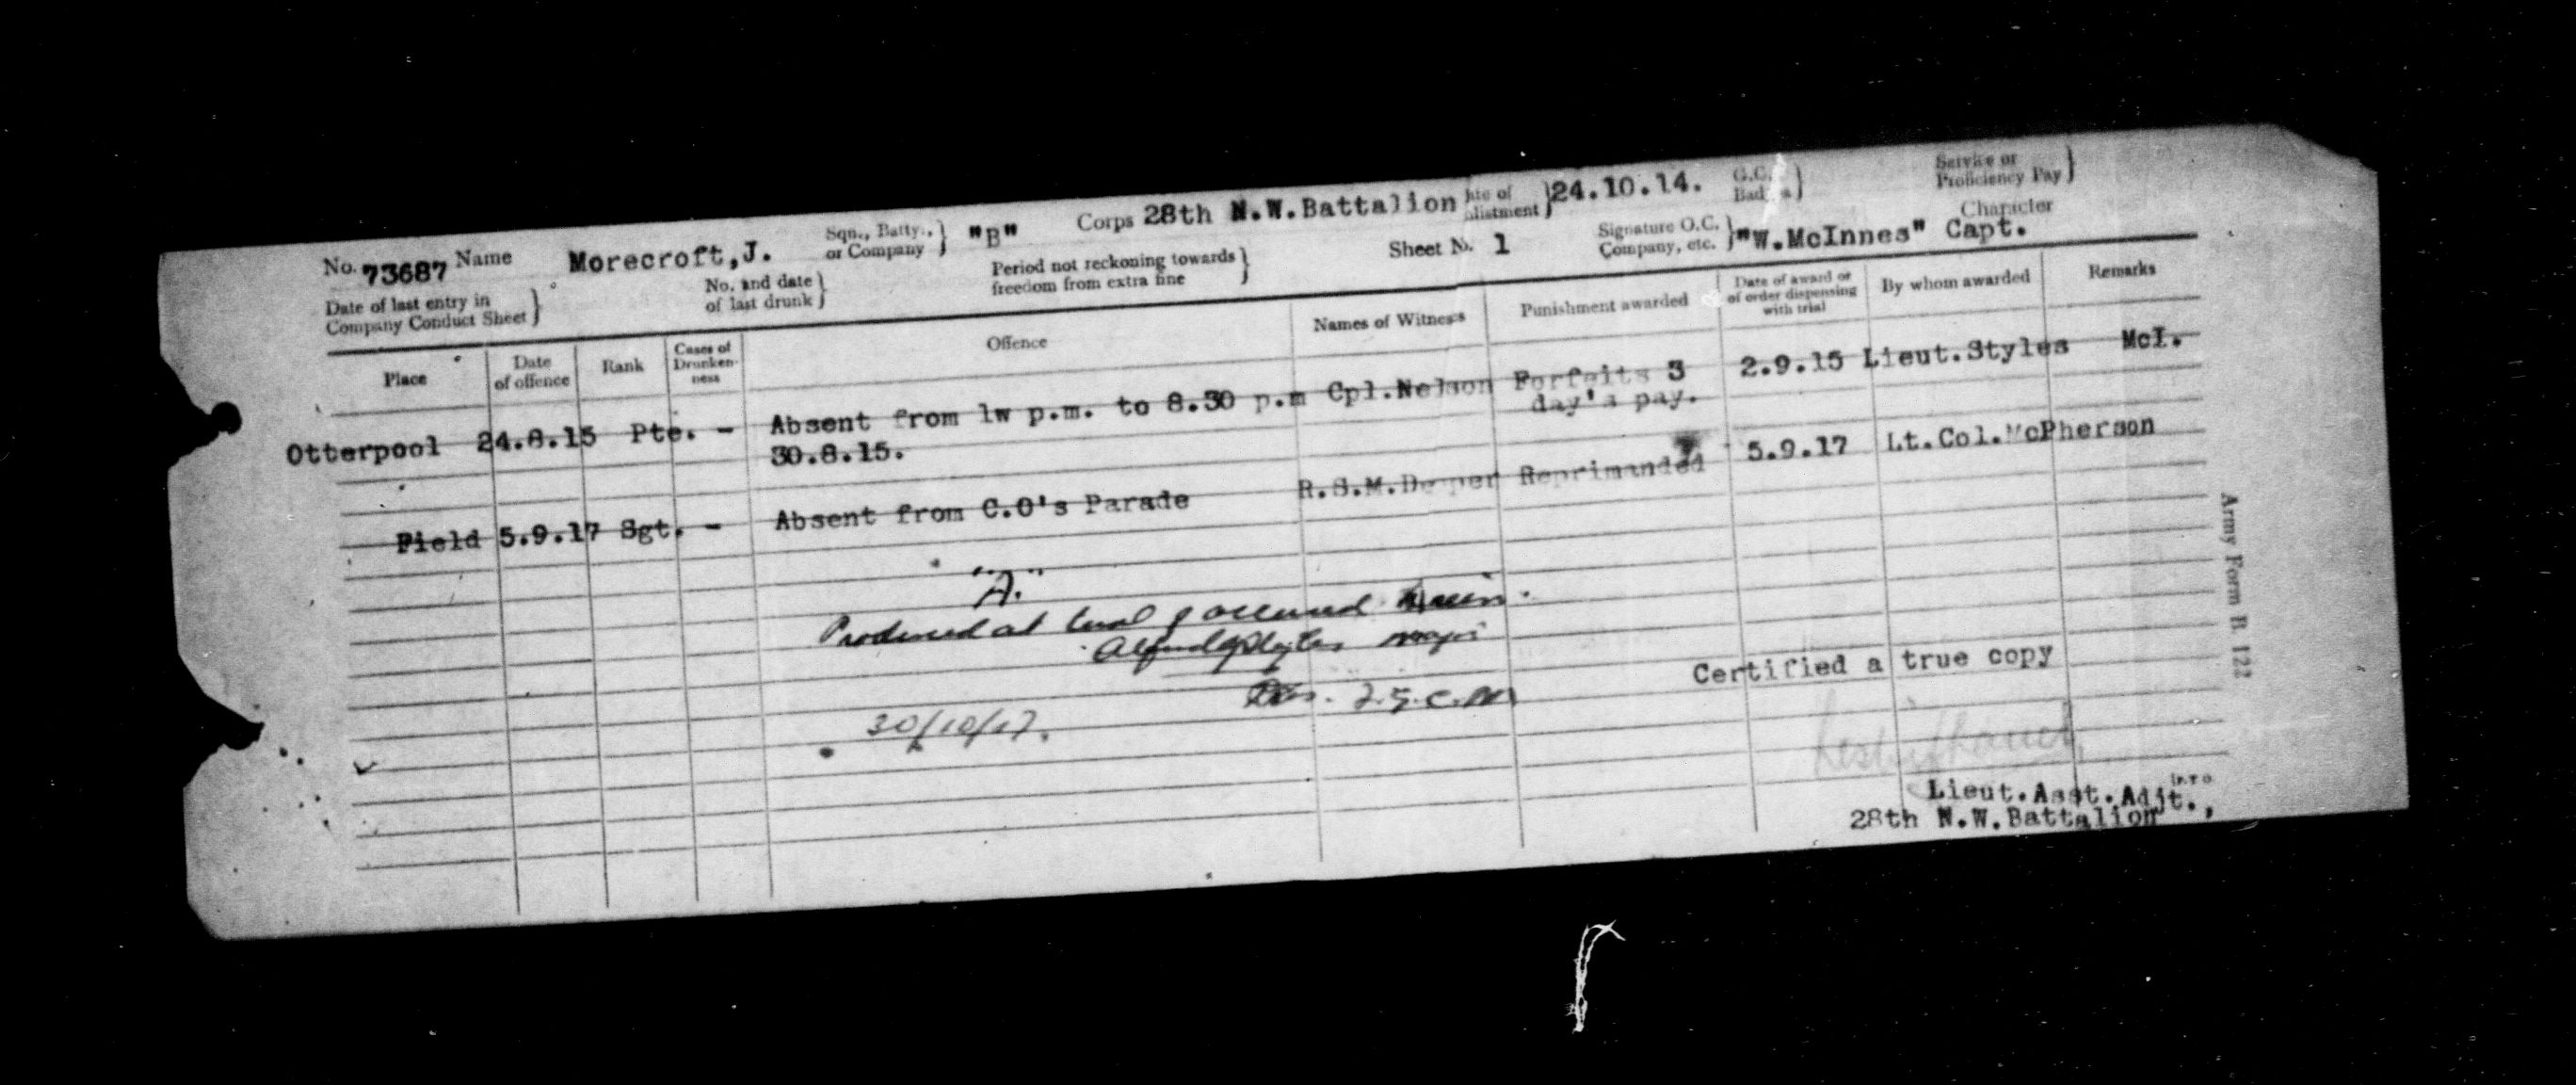 No. 73687 Name Morecroft,J. Sqn., Batty., or Company } "B" Corps 28th N.W.Battalion Date of Enlistment } 24.10.14. G.C. Bad s } Service or Proficiency Pay }
Date of last entry in Company Conduct Sheet } No. and date of last drunk } Period not reckoning towards freedom from extra fine } Sheet No. 1 Signature O.C. Company, etc. } "W.McInnes" Capt. Character
Place Date of offence Rank Cases of Drunken-ness Offence Names of Witness Punishment awarded Date of award or of order dispensing with trial By whom awarded Remarks
Otterpool 24.8.15 Pte. - Absent from 1w p.m. to 8.30 p.m Cpl.Nelson Forfeits 3 2.9.15 Lieut.Styles McI.
30.8.15. day's pay.
Field 5.9.17 Sgt. - Absent from C.O's Parade R.S.M. Reprimanded 5.9.17 Lt.Col.McPherson
"A."
Produced at trial of accused
Major
Pres. F.G.C.M
30/10/17.
Certified a true copy
Lieut.Asst.Adjt.,
28th N.W.Battalion
Army Form B. 122